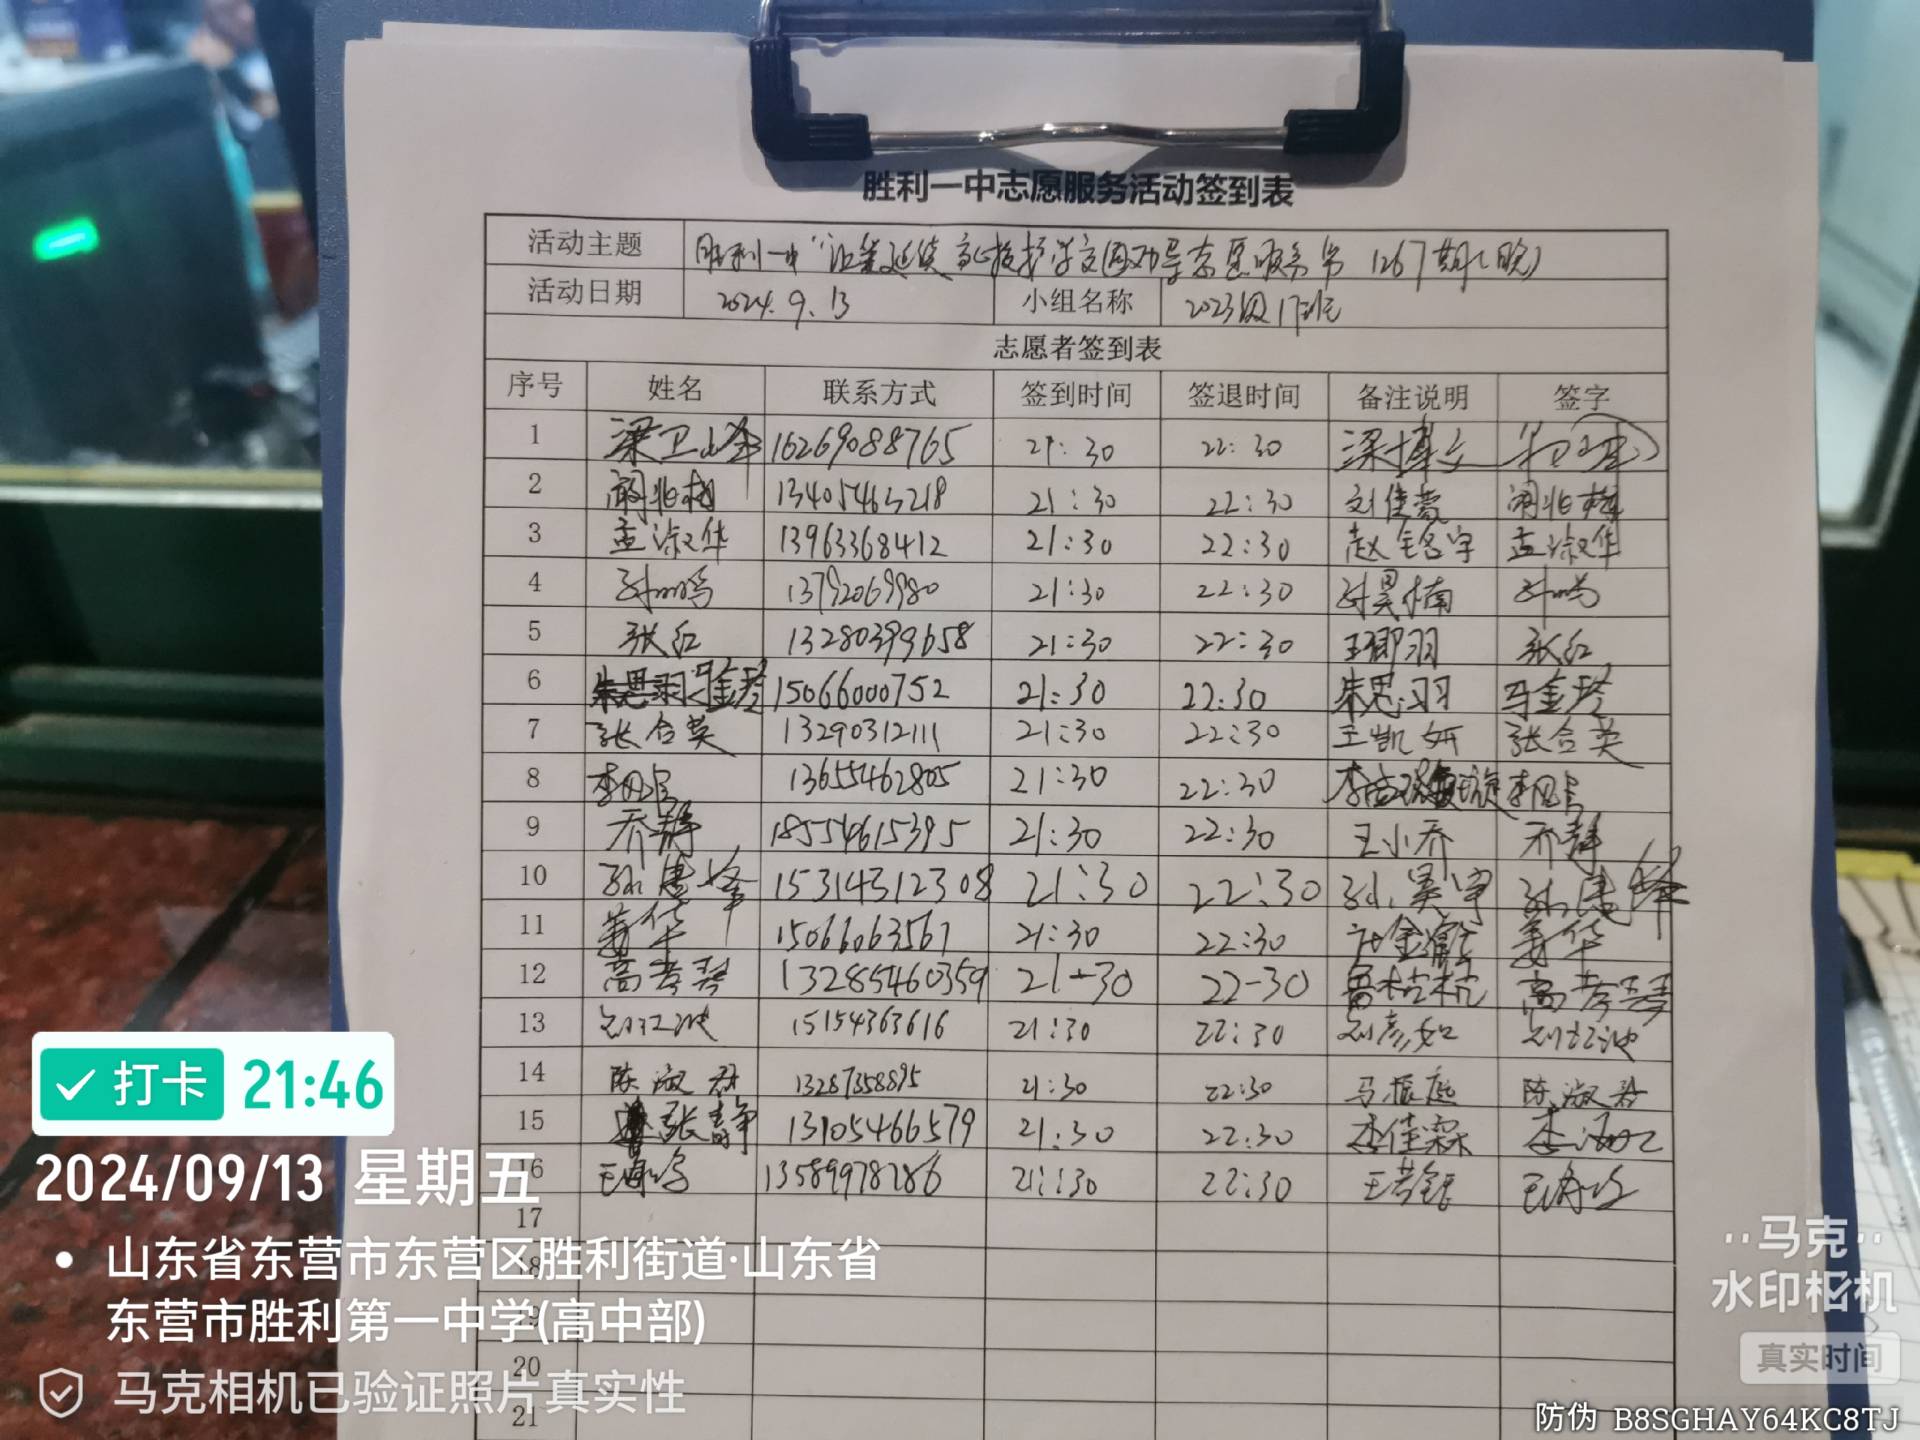 胜利一中志愿服务活动签到表
活动主题 胜利一中 护学交通劝导志愿服务第1267期(晚)
活动日期 2024.9.13 小组名称 2023级17班
志愿者签到表
序号 姓名 联系方式 签到时间 签退时间 备注说明 签字
1 梁卫峰 16269088765 21:30 22:30 梁博文
2 13405463218 21:30 22:30 刘佳蕾
3 孟淑华 13963368412 21:30 22:30 赵铭宇 孟淑华
4 孙鹏 13792069980 21:30 22:30 孙昊楠 孙鹏
5 张红 13280399658 21:30 22:30 王郡羽 张红
6 马金琴 15066000752 21:30 22:30 朱思羽 马金琴
7 张合英 13290312111 21:30 22:30 王凯妍 张合英
8 13655462805 21:30 22:30
9 乔静 18554615395 21:30 22:30 王小乔 乔静
10 孙建峰 15314312308 21:30 22:30 孙昊宇 孙建峰
11 姜华 15066063567 21:30 22:30 姜华
12 高孝琴 13285460359 21-30 22-30 高孝琴
13 刘江波 15154363616 21:30 22:30 刘彦如 刘江波
14 陈淑君 13287358895 21:30 22:30 马振庭 陈淑君
15 张静 13105466579 21:30 22:30 李佳霖
16 王海鸣 13589978286 21:30 22:30
17
18
19
20
21
打卡 21:46
2024/09/13 星期五
山东省东营市东营区胜利街道·山东省
东营市胜利第一中学(高中部)
马克相机已验证照片真实性
马克
水印相机
真实时间
防伪 B8SGHAY64KC8TJ